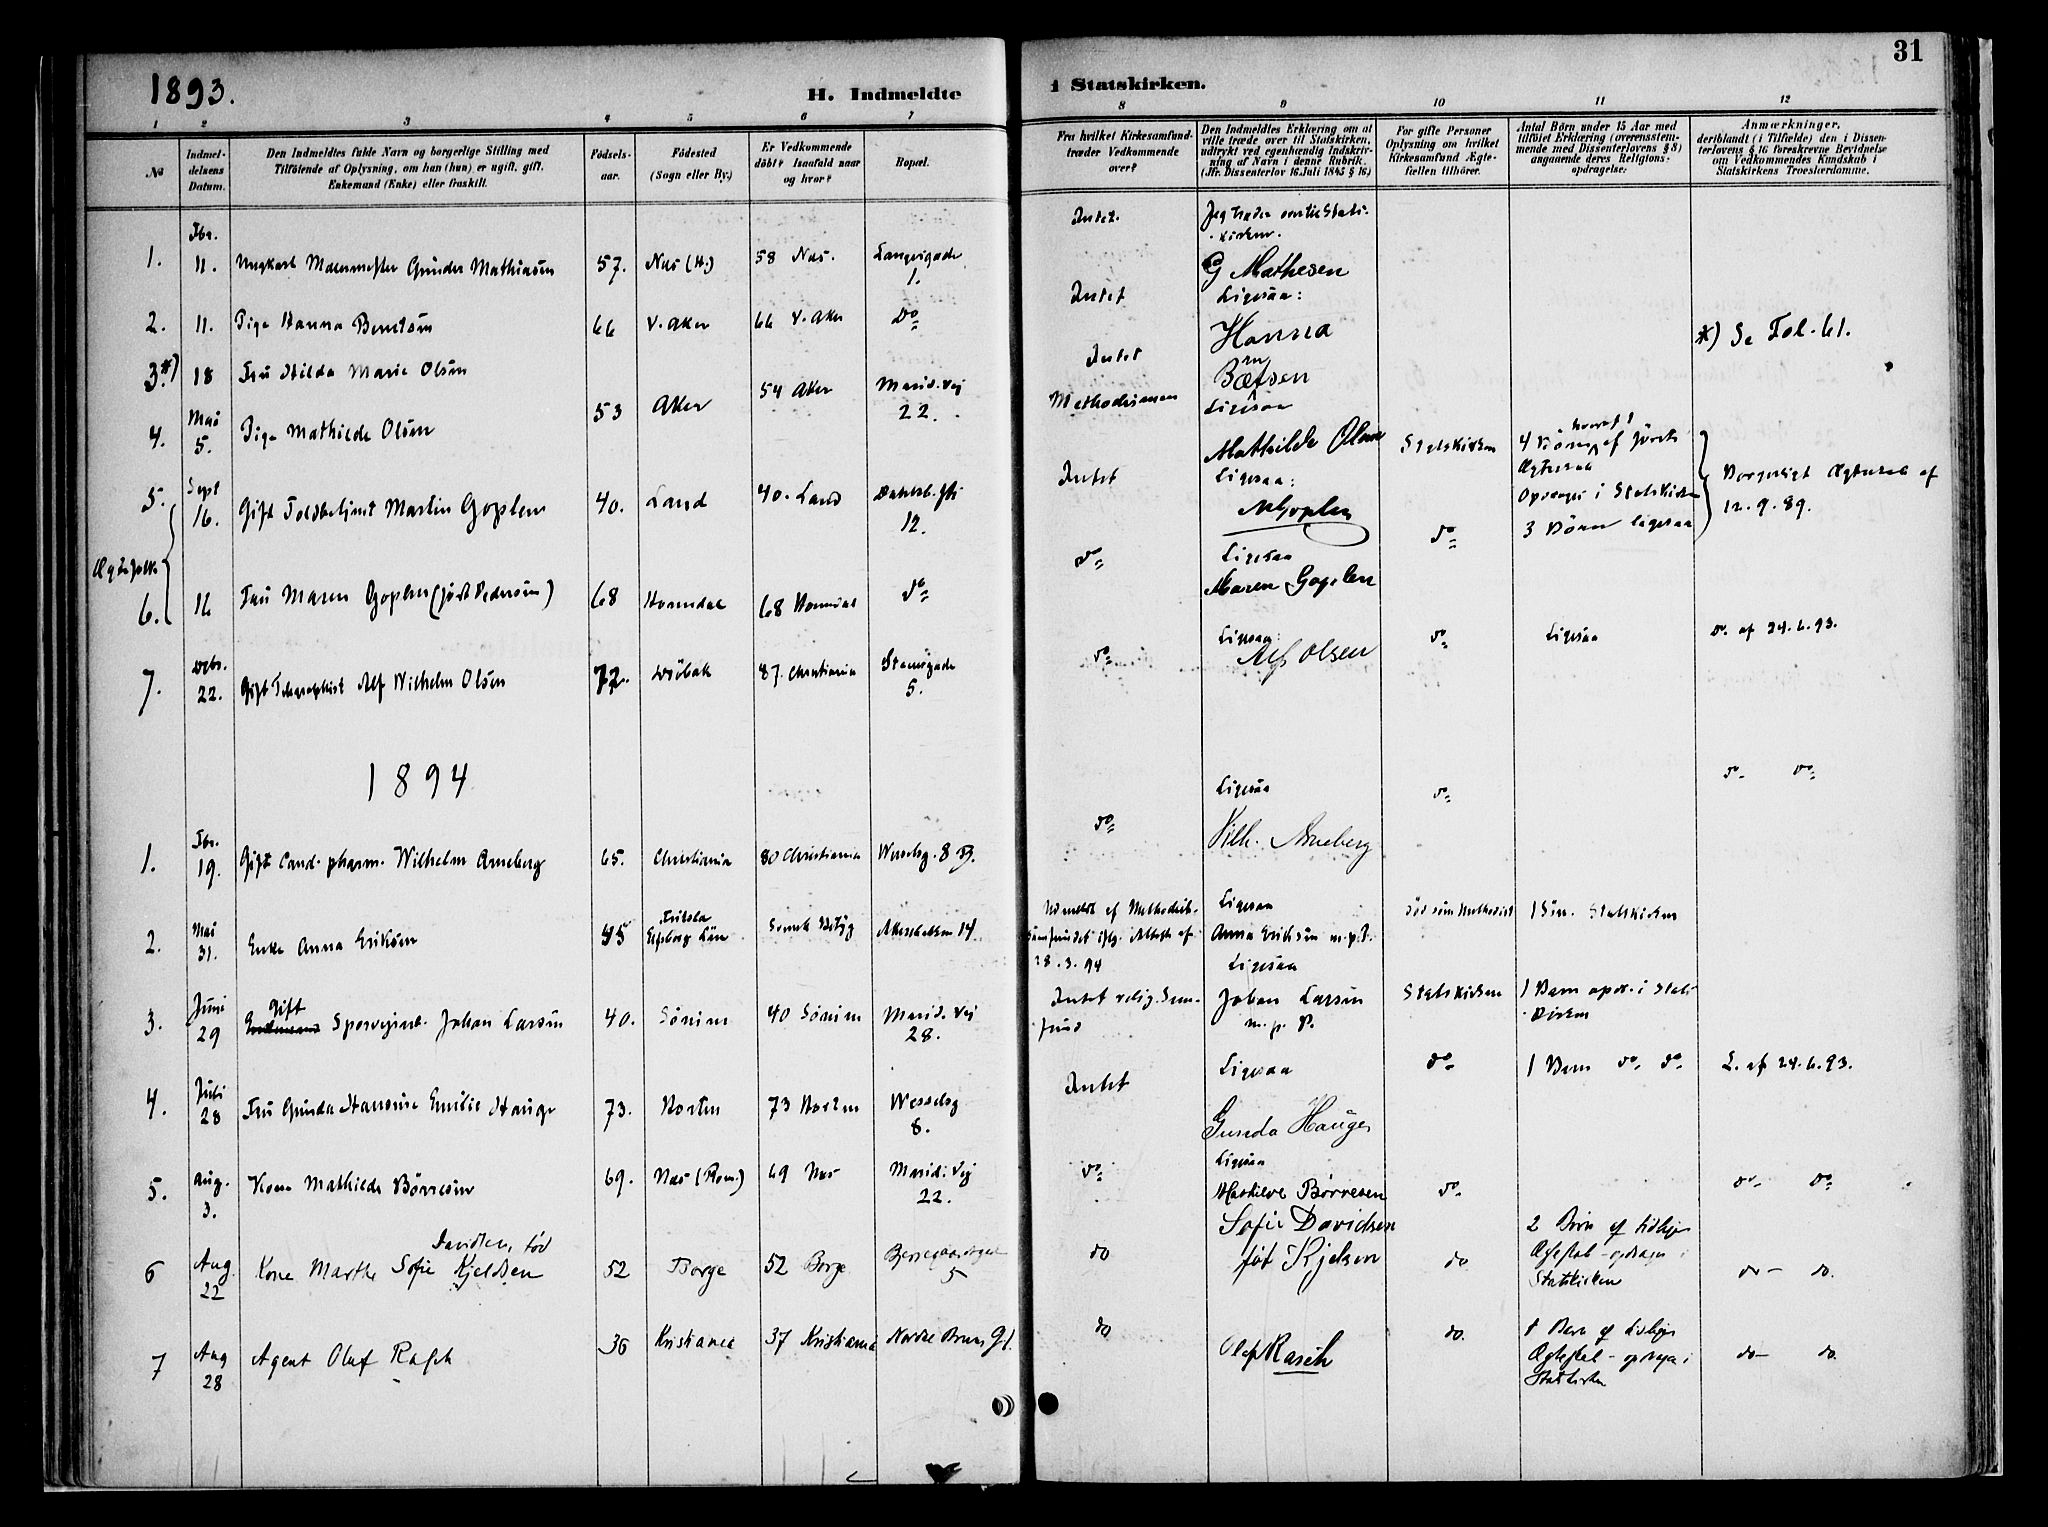 1893.
H. Indmeldte
1
2
3
4
5
6
7
No
Indmel-
delsens
Datum.
Den Indmeldtes fulde Navn og borgerlige Stilling med
Tilføiende af Oplysning, om han (hun) er ugift, gift,
Enkemand (Enke) eller fraskilt.
Fødsels-
aar.
Fødested
(Sogn eller By.)
Er Vedkommende
døbt? Isaafald naar
og hvor?
Bopæl.
Fbr.
1. 11. Ungkarl Malermester Gunder Mathiasen 57. Næs (H.) 58 Næs. Langesgade
1.
2. 11. Pige Hanna Berntsen 66 V. Aker 66 V. Aker Do
3*) 18 Fru Hilda Marie Olsen
Mai
4. 5. Pige Mathilde Olsen 53 Aker 54 Aker Marid. Vej
22.
Sept
5. 16. Gift Toldbetjent Martin Goplen 40. Land 40. Land
12.
Ægtefolk
6. 16 Fru Maren Goplen (født Pedersen) 68 Horndal 68 Horndal do
Decbr.
7. 22. Gift Telegraphist Alf Wilhelm Olsen 72. Drøbak 87. Christiania Stensgade
5.
1894
Fbr.
1. 19. Gift Cand. pharm. Wilhelm Arneberg 65. Christiania 80 Christiania Wesselsg. 8 B.
Mai
2. 31. Enke Anna Eriksen 45 Elfsborg Län Akersbakken 14
Juni
3. 29 Gift Sporvejsarb. Johan Larsen 40. Sørum 40 Sørum Marid. Vej
28.
Juli
4. 28 Fru Gunda Hansine Emilie Hauge 73. Horten 73 Horten Wesselsg
8.
Aug.
5. 3. Kone Mathilde Børresen 69. Næs (Rom.) 69 Næs Marid. Vej
22.
Davidsen, fød
6 Aug 22 Kone Marthe Sofie Kjeldsen 52 Borge 52 Borge
5
7 Aug 28 Agent Oluf Rasch 36 Kristiania 37 Kristiania Nordre Brun Gl.
31
i Statskirken.
8
9
10
11
12
Fra hvilket Kirkesamfund
træder Vedkommende
over?
Den Indmeldtes Erklæring om at
ville træde over til Statskirken,
udtrykt ved egenhændig Indskriv-
ning af Navn i denne Rubrik.
(Jfr. Dissenterlov 16. Juli 1845 § 16.)
For gifte Personer
Oplysning om hvilket
Kirkesamfund Ægte-
fællen tilhører.
Antal Børn under 15 Aar med
tilføiet Erklæring (overensstem-
mende med Dissenterlovens § 8)
angaaende deres Religions-
opdragelse:
Anmærkninger,
deriblandt (i Tilfælde) den i Dissen-
terlovens § 16 foreskrevne Bevidnelse
om Vedkommendes Kundskab i
Statskirkens Troeslærdomme.
Intet. Jeg træder over til Stats-
kirken.
G Mathesen
Intet Ligesaa:
Hanna
Berntsen
*) Se Fol. 61.
Intet
Methodismen Ligesaa
Mathilde Olsen
Intet Ligesaa: Statskirken 4 Børn af første
Ægteskab
Opdrages i Statskirken
3 Børn ligesaa
MGoplen
Borgerligt Ægteskab af
12. 9. 89.
do Ligesaa do
Maren Goplen
do Ligesaa: do Ligesaa do. af 24. 6. 93.
Alf Olsen
do Ligesaa do do do
Vilh. Arneberg
Udmeldt af Methodist-
samfundet iflg. Attest af
28. 3. 94
Ligesaa
Anna Eriksen m.p.P.
død som Methodist 1 Søn. Statskirken
Ligesaa
Intet relig. Sam-
fund
Johan Larsen
m. p. P.
Statskirken 1 Barn opdr. i Stats
kirken
Intet Ligesaa do 1 Barn do do L. af 24. 6. 93.
Gunda Hauge
do Ligesaa
Mathilde Børresen do do do
do Sofie Davidsen
født Kjelsen do
2 Børn af tidligere
Ægteskab - opdrages i
Statskirken
do - do.
do Olaf Rasch do.
1 Barn af tidligere
Ægteskab - opdrages i
Statskirken
do - do.